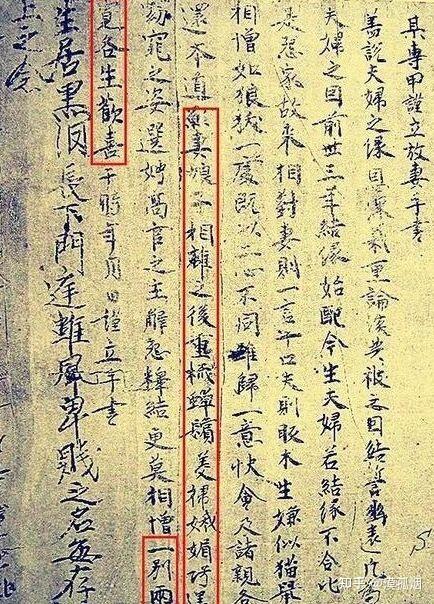 某專甲謹立放妻手書
蓋說夫婦之緣恩深義重論談共被之因結誓幽遠凡為
夫婦之因前世三年結緣始配今生夫婦若結緣不合比
是怨家故來相對妻則一言十口夫則販木生嫌似猫鼠
相憎如狼狵一處既以二心不同難歸一意快會及諸親各
還本道願妻娘子相離之後重梳蟬鬢美掃娥媚巧逞
窈窕之姿選娉高官之主解怨釋結更莫相憎一別兩
寬各生歡喜于時年月日謹立手書
生居黑 長下門庭難 卑賤之名每存
上之念
知乎 孤烟